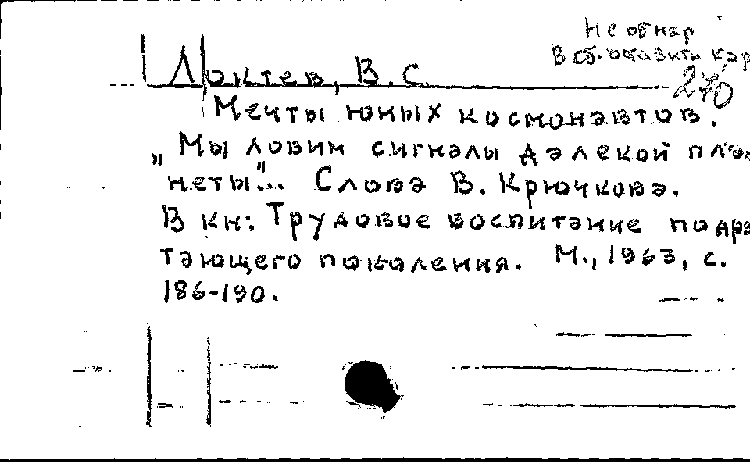 Не обнар
В сб. указать кар
270
Локтев, В.С.
Мечты юных космонавтов.
„Мы ловим сигналы далекой пла-
неты"... Слова В. Крючкова.
В кн: Трудовое воспитание подрас
тающего поколения. М., 1963, с.
186-190.